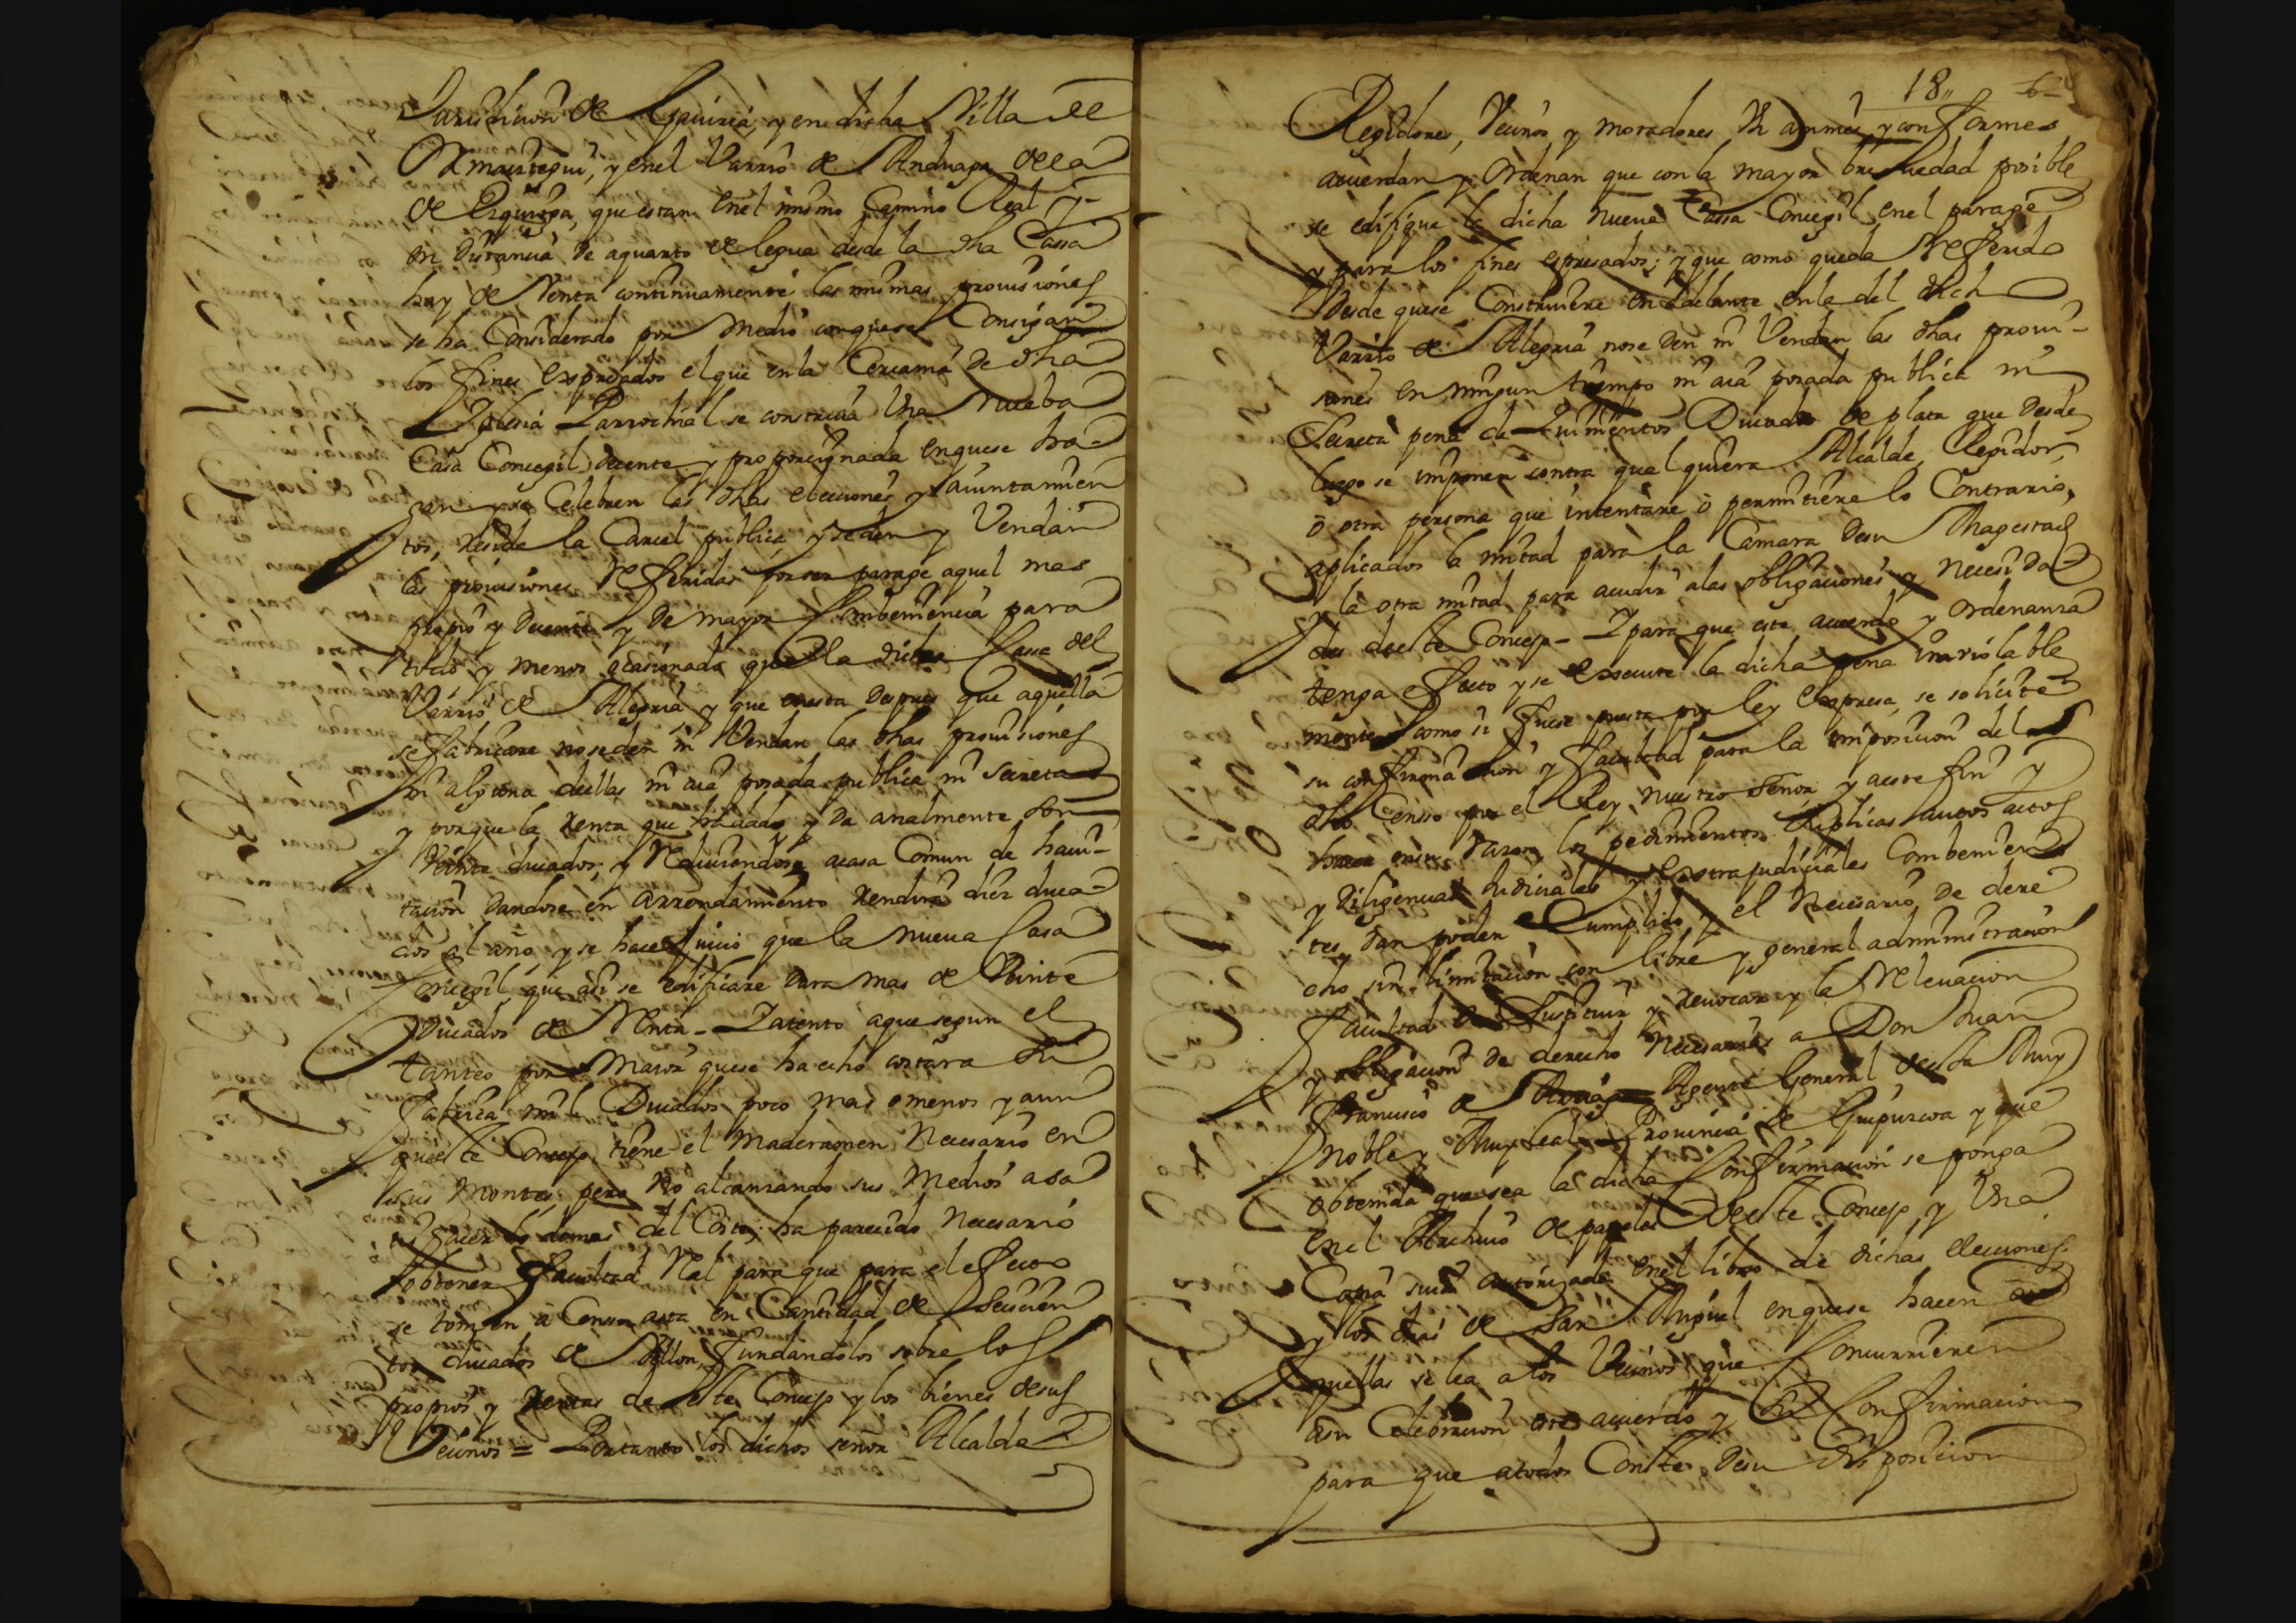 Jurisdicion de Gauiria, y en dicha Villa de
Ormaiztegui, y en el Varrio de Anduaga de la
de Ezquioga, que estan en el mismo Camino Real y
en distancia de a quarto de legua desde la dha Cassa
hay de Venta continuamente las mismas prouisiones
se ha Considerado por Medio con que se Consigan
los fines expresados el que en la Cercania de dha
Iglesia Parrochial se construia Vna nueba
Casa Concegil decente y proporcionada en que se ha-
gan y se Celebren las dhas elecciones y aiuntamien
tos, resida la Carcel publica y se den y Vendan
las prouisiones Referidas por ser parage aquel mas
propio y decente y de mayor Combeniencia para
todo y menos ocasionado que la dicha Cassa del
Varrio de Alegria y que en esta despues que aquella
se fabricare no se den ni Vendan las dhas prouisiones
ni alguna dellas ni aia posada publica ni secreta
y porque la renta que ha dado y da anualmente son
Veinte ducados, y Reduciendose a casa Comun de haui-
tacion dandose en arrendamiento rendira diez duca-
dos al año, y se hace Juicio que la nueua Casa
Concegil que asi se edificare dara mas de Veinte
Ducados de Renta - Y atento a que segun el
tanteo por Maior que se ha echo costara su
fabrica mil Ducados poco mas o menos y aun
que este Concejo tiene el Maderamen Necesario en
sus Montes, pero No alcanzando sus Medios a sa
tisfacer lo demas del Costo; ha parecido Necesario
obtener facultad Real para que para el efecto
se tomen a Censo asta en Cantidad de Seiscien
tos ducados de Vellon, fundandolos sobre los
propios y Rentas de este Concejo y los bienes de sus
Vecinos = Por tanto los dichos señor Alcalde
18,,
Regidores, Vecinos y moradores Vnanimes y conformes
acuerdan y Ordenan que con la mayor breuedad posible
se edifique la dicha nueua Cassa Concegil en el parage
y para los fines espresados; y que como queda Referido
desde que se Construiere en adelante en la del dicho
Varrio de Alegria no se den ni Vendan las dhas proui-
siones en ningun tiempo ni aia posada publica ni
Secreta pena de Quinientos Ducados de plata que desde
luego se imponen contra qualquiera Alcalde, Regidor,
o otra persona que intentare o permitiere lo Contrario,
aplicados la mitad para la Camara de su Magestad
y la otra mitad para acudir a las obligaciones y necesida-
des deste Concejo - Y para que este acuerdo y ordenanza
tenga efecto y se execute la dicha pena inviolable
mente como si fuese puesta por ley expresa, se solicite
su confirmacion y facultad para la imposicion del
dho Censo por el Rey nuestro señor y a este fin y
hacer en su razon los pedimientos suplicas autos actos
y diligencias Judiciales y extrajudiciales Combenien
tes, dan poder Cumplido y el Necesario de dere
cho sin limitacion con libre y general administracion
facultad de Sustituir y reuocar y la Releuacion
y obligacion de derecho necesarias a Don Juan
Francisco de Agente General desta Muy
Noble y Muy Leal Prouincia de Guipuzcoa y que
obtenida que sea la dicha Confirmacion se ponga
en el Archiuo de papeles deeste Concejo y Vna
Copia suia autorizada en el libro de dichas elecciones,
y los dias de San Miguel en que se hacen
aquellas se lea a los Vecinos que Concurrieren
a su Celebracion este acuerdo y su Confirmacion
para que a todos Conste de su disposicion